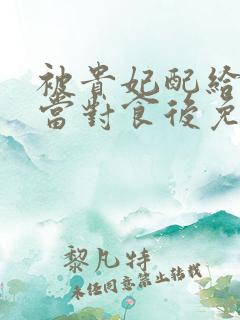 被貴妃配給
當對食後
黎凡特
未經同意禁止轉載